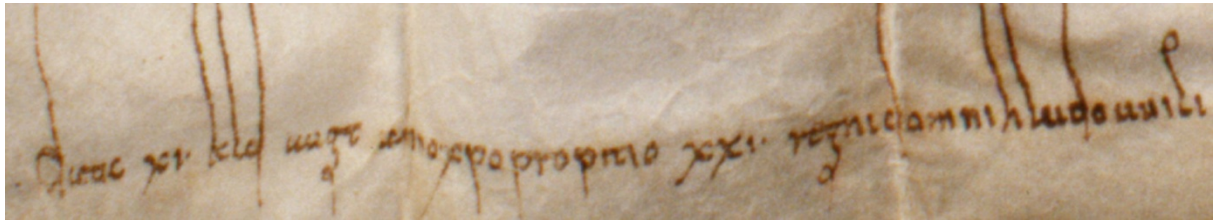 Data xi· kld aug anno xpo propitio xxi· regni domni hludouuici